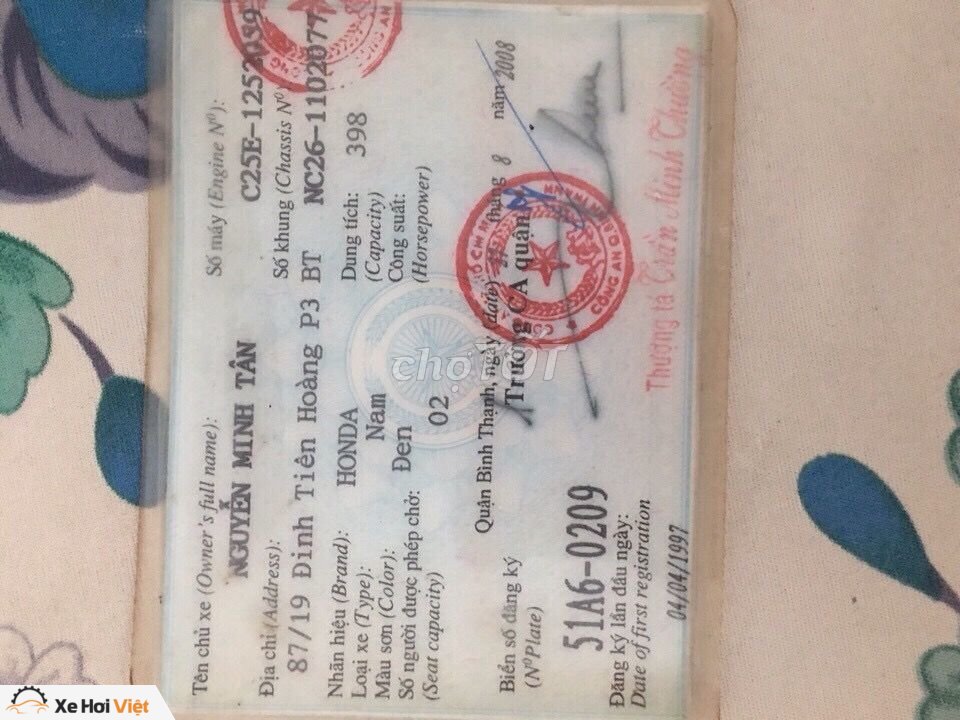 Tên chủ xe (Owner's full name):
NGUYỄN MINH TÂN
Địa chỉ (Address):
87/19 Đinh Tiên Hoàng P3 BT
Nhãn hiệu (Brand): HONDA
Loại xe (Type): Nam
Màu sơn (Color): Đen
Số người được phép chở: 02
(Seat capacity)
Số máy (Engine Nº):
C25E-1252039
Số khung (Chassis Nº)
NC26-1102077
Dung tích: 398
(Capacity)
Công suất:
(Horsepower)
Quận Bình Thạnh, ngày (date) tháng 8 năm 2008
Trưởng CA quận
CÔNG AN
Thượng tá Trần Minh Thường
Biển số đăng ký
(Nº Plate)
51A6-0209
Đăng ký lần đầu ngày:
Date of first registration
04/04/1997
chợTỐT
Xe Hơi Việt